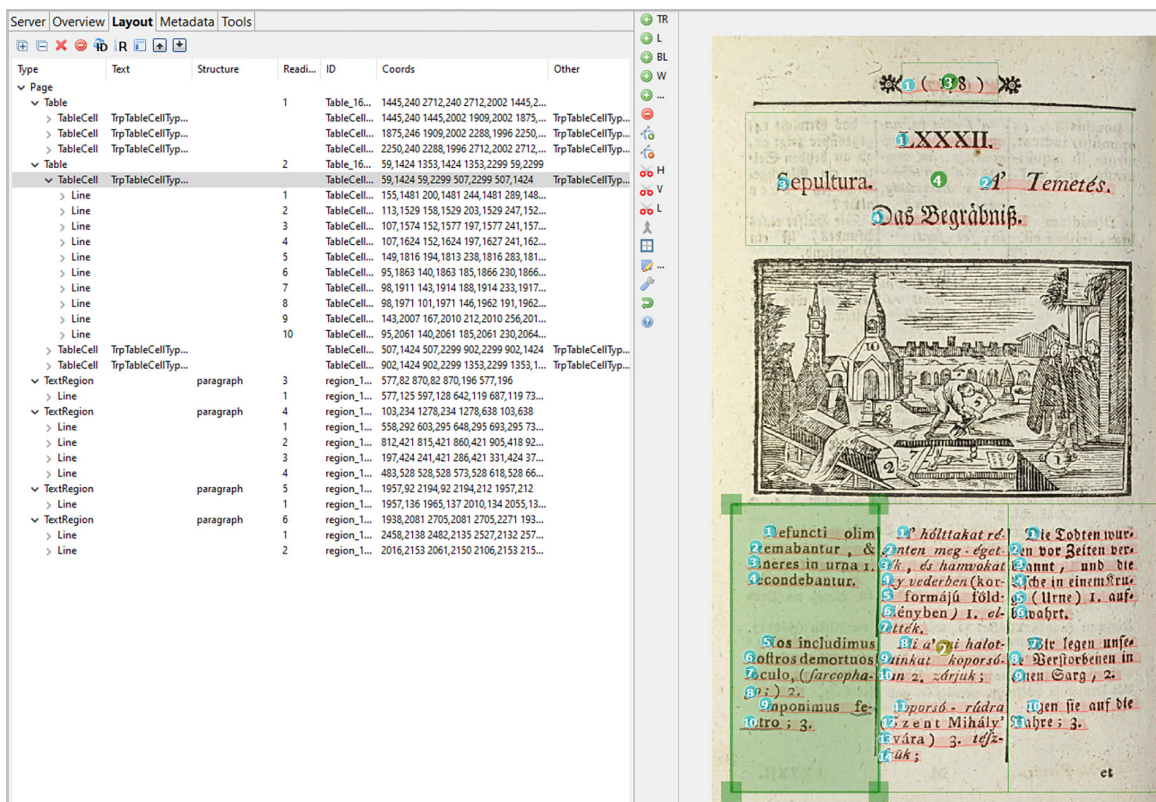 Server Overview Layout Metadata Tools
ID R
Type Text Structure Readi... ID Coords Other
Page
Table 1 Table_16... 1445,240 2712,240 2712,2002 1445,2...
TableCell TrpTableCellTyp... TableCell... 1445,240 1445,2002 1909,2002 1875,... TrpTableCellTyp...
TableCell TrpTableCellTyp... TableCell... 1875,246 1909,2002 2288,1996 2250,... TrpTableCellTyp...
TableCell TrpTableCellTyp... TableCell... 2250,240 2288,1996 2712,2002 2712,... TrpTableCellTyp...
Table 2 Table_16... 59,1424 1353,1424 1353,2299 59,2299
TableCell TrpTableCellTyp... TableCell... 59,1424 59,2299 507,2299 507,1424 TrpTableCellTyp...
Line 1 TableCell... 155,1481 200,1481 244,1481 289,148...
Line 2 TableCell... 113,1529 158,1529 203,1529 247,152...
Line 3 TableCell... 107,1574 152,1577 197,1577 241,157...
Line 4 TableCell... 107,1624 152,1624 197,1627 241,162...
Line 5 TableCell... 149,1816 194,1813 238,1816 283,181...
Line 6 TableCell... 95,1863 140,1863 185,1866 230,1866...
Line 7 TableCell... 98,1911 143,1914 188,1914 233,1917...
Line 8 TableCell... 98,1971 101,1971 146,1962 191,1962...
Line 9 TableCell... 143,2007 167,2010 212,2010 256,201...
Line 10 TableCell... 95,2061 140,2061 185,2061 230,2064...
TableCell TrpTableCellTyp... TableCell... 507,1424 507,2299 902,2299 902,1424 TrpTableCellTyp...
TableCell TrpTableCellTyp... TableCell... 902,1424 902,2299 1353,2299 1353,1... TrpTableCellTyp...
TextRegion paragraph 3 region_1... 577,82 870,82 870,196 577,196
Line 1 region_1... 577,125 597,128 642,119 687,119 73...
TextRegion paragraph 4 region_1... 103,234 1278,234 1278,638 103,638
Line 1 region_1... 558,292 603,295 648,295 693,295 73...
Line 2 region_1... 812,421 815,421 860,421 905,418 92...
Line 3 region_1... 197,424 241,421 286,421 331,424 37...
Line 4 region_1... 483,528 528,528 573,528 618,528 66...
TextRegion paragraph 5 region_1... 1957,92 2194,92 2194,212 1957,212
Line 1 region_1... 1957,136 1965,137 2010,134 2055,13...
TextRegion paragraph 6 region_1... 1938,2081 2705,2081 2705,2271 193...
Line 1 region_1... 2458,2138 2482,2135 2527,2132 257...
Line 2 region_1... 2016,2153 2061,2150 2106,2153 215...
TR
L
BL
W
...
H
V
L
...
LXXXII.
Sepultura. A' Temetés.
Das Begräbniß.
Defuncti olim
cremabantur , &
cineres in urna 1.
recondebantur.
Nos includimus
nostros demortuos
loculo, (sarcopha-
go ; ) 2.
Imponimus fe-
retro ; 3.
A' hólttakat ré-
genten meg-éget-
ték , és hamvokat
egy vederben (kor-
só formájú föld-
edényben) 1. el-
tették.
Mi a' mi halot-
tainkat koporsó-
ban 2. zárjuk ;
koporsó - rúdra
(Szent Mihály'
lovára) 3. tész-
szük ;
Die Todten wur-
den vor Zeiten ver-
brannt , und die
Asche in einem Kru-
ge (Urne) 1. auf-
bewahrt.
Wir legen unse-
re Verstorbenen in
einen Sarg , 2.
legen sie auf die
Bahre ; 3.
et